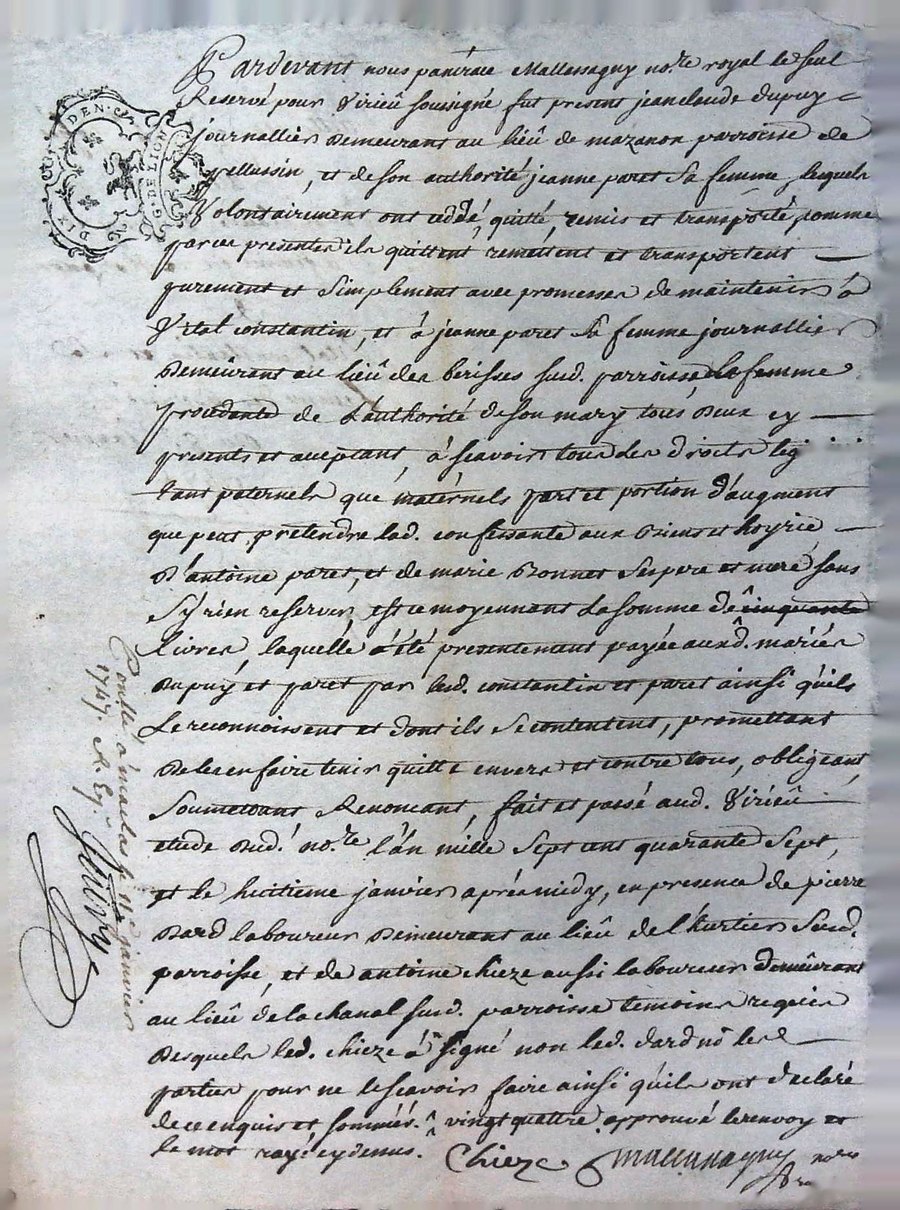 Pardevant nous pancrace Mallessaguy no.re royal le seul
Reservé pour Virieû sousigné fut present jean claude dupuy
journallier Demeurant au lieû de mazanon parroisse de
pellussin, et de son authorité jeanne paret sa femme, lequels
Volontairement ont ceddé, quitté, remis et transporté, comme
par ce presentes ils quittent remettent et transportent
purement et simplement avec promesse de maintenir à
Vital constantin, et à jeanne paret sa femme journallier
Demeurant au lieû des berisses susd. parroisse la femme
procedante de L'authorité de son mary tous Deux cy
presents et aceptant, à scavoir tous les droits leg
tant paternels que maternels part et portion d'augment
que peut pretendre lad. confessante aux Biens et hoyrie
D'antoine paret, et de marie Bonnet ses pere et mere sans
s'y rien reserver, est ce moyennant la somme de ^ cinquante
Livres laquelle à été presentement payée auxd. mariés
Dupuy et paret par lesd. constantin et paret ainsi qu'ils
Le reconnoissent et dont ils se contentent, promettant
De les en faire tenir quitte envers et contre tous, obligeant
Soumettant Renoncant, fait et passé aud. Virieû
etude dud. no.re l'an mille sept cent quarante sept,
et le huitieme janvier apres midy, en presence de pierre
Dard laboureur Demeurant au lieû de l'hurtier susd.
parroisse, et de antoine chieze aussi laboureur demeurant
au lieû de la chanal susd. parroisse temoins requis
Desquels led. chieze à signé non led. dard nô lesd
parties pour ne le scavoir faire ainsi qu'ils ont declaré
de ce enquis et sommés. ^ vingt quattre approuvé le renvoy et
le mot rayé cy dessus.
Chieze Mallessaguy no.re
DIX DEN. G. DE LION
Conllé à maclas le 11e janvier
1747. R.